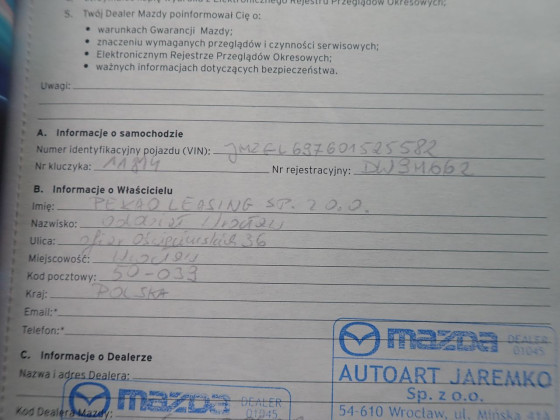 Elektronicznego Rejestru Przeglądów Okresowych;
5. Twój Dealer Mazdy poinformował Cię o:
• warunkach Gwarancji Mazdy;
• znaczeniu wymaganych przeglądów i czynności serwisowych;
• Elektronicznym Rejestrze Przeglądów Okresowych;
• ważnych informacjach dotyczących bezpieczeństwa.
Uwagi:
A. Informacje o samochodzie
Numer identyfikacyjny pojazdu (VIN):
Nr kluczyka: 11814 Nr rejestracyjny: DW3H662
B. Informacje o Właścicielu
Imię: PEKAO LEASING SP. Z O.O.
Nazwisko:
Ulica: 36
Miejscowość:
Kod pocztowy: 50-033
Kraj: POLSKA
Email:*
Telefon:*
C. Informacje o Dealerze
Nazwa i adres Dealera:
Kod Dealera Mazdy:
mazda DEALER 01045
mazda DEALER 01045
AUTOART JAREMKO
Sp. z o.o.
54-610 Wrocław, ul. Mińska